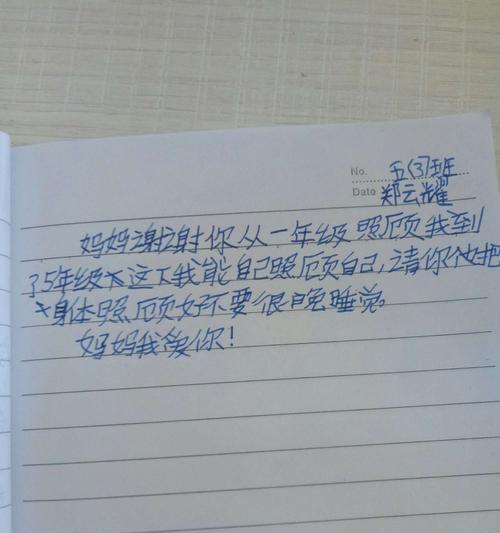 No. 五(3)班
Date 郑云耀
妈妈谢谢你从一年级照顾我到
了5年级这下我能自己照顾自己,请你把
身体照顾好不要很晚睡觉。
妈妈我爱你!